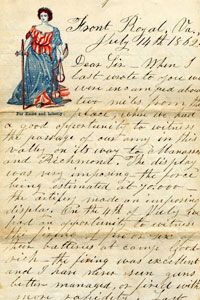 Front Royal, Va.
July 14th 1862
Dear Sir - When I
last wrote to you we
were encamped about
two miles from the
place, where we had
For Union and Liberty
a good opportunity to witness
the passage of our army in this
Valley on its way to Manassas
and Richmond. The display
was very imposing the force
being estimated at 40,000
The artillery made an imposing
display. On the 4th of July we
had an opportunity to witness
their batteries at camp. Good
rich - the firing was excellent
and I have never seen guns
better managed, or fired with
more rapidity